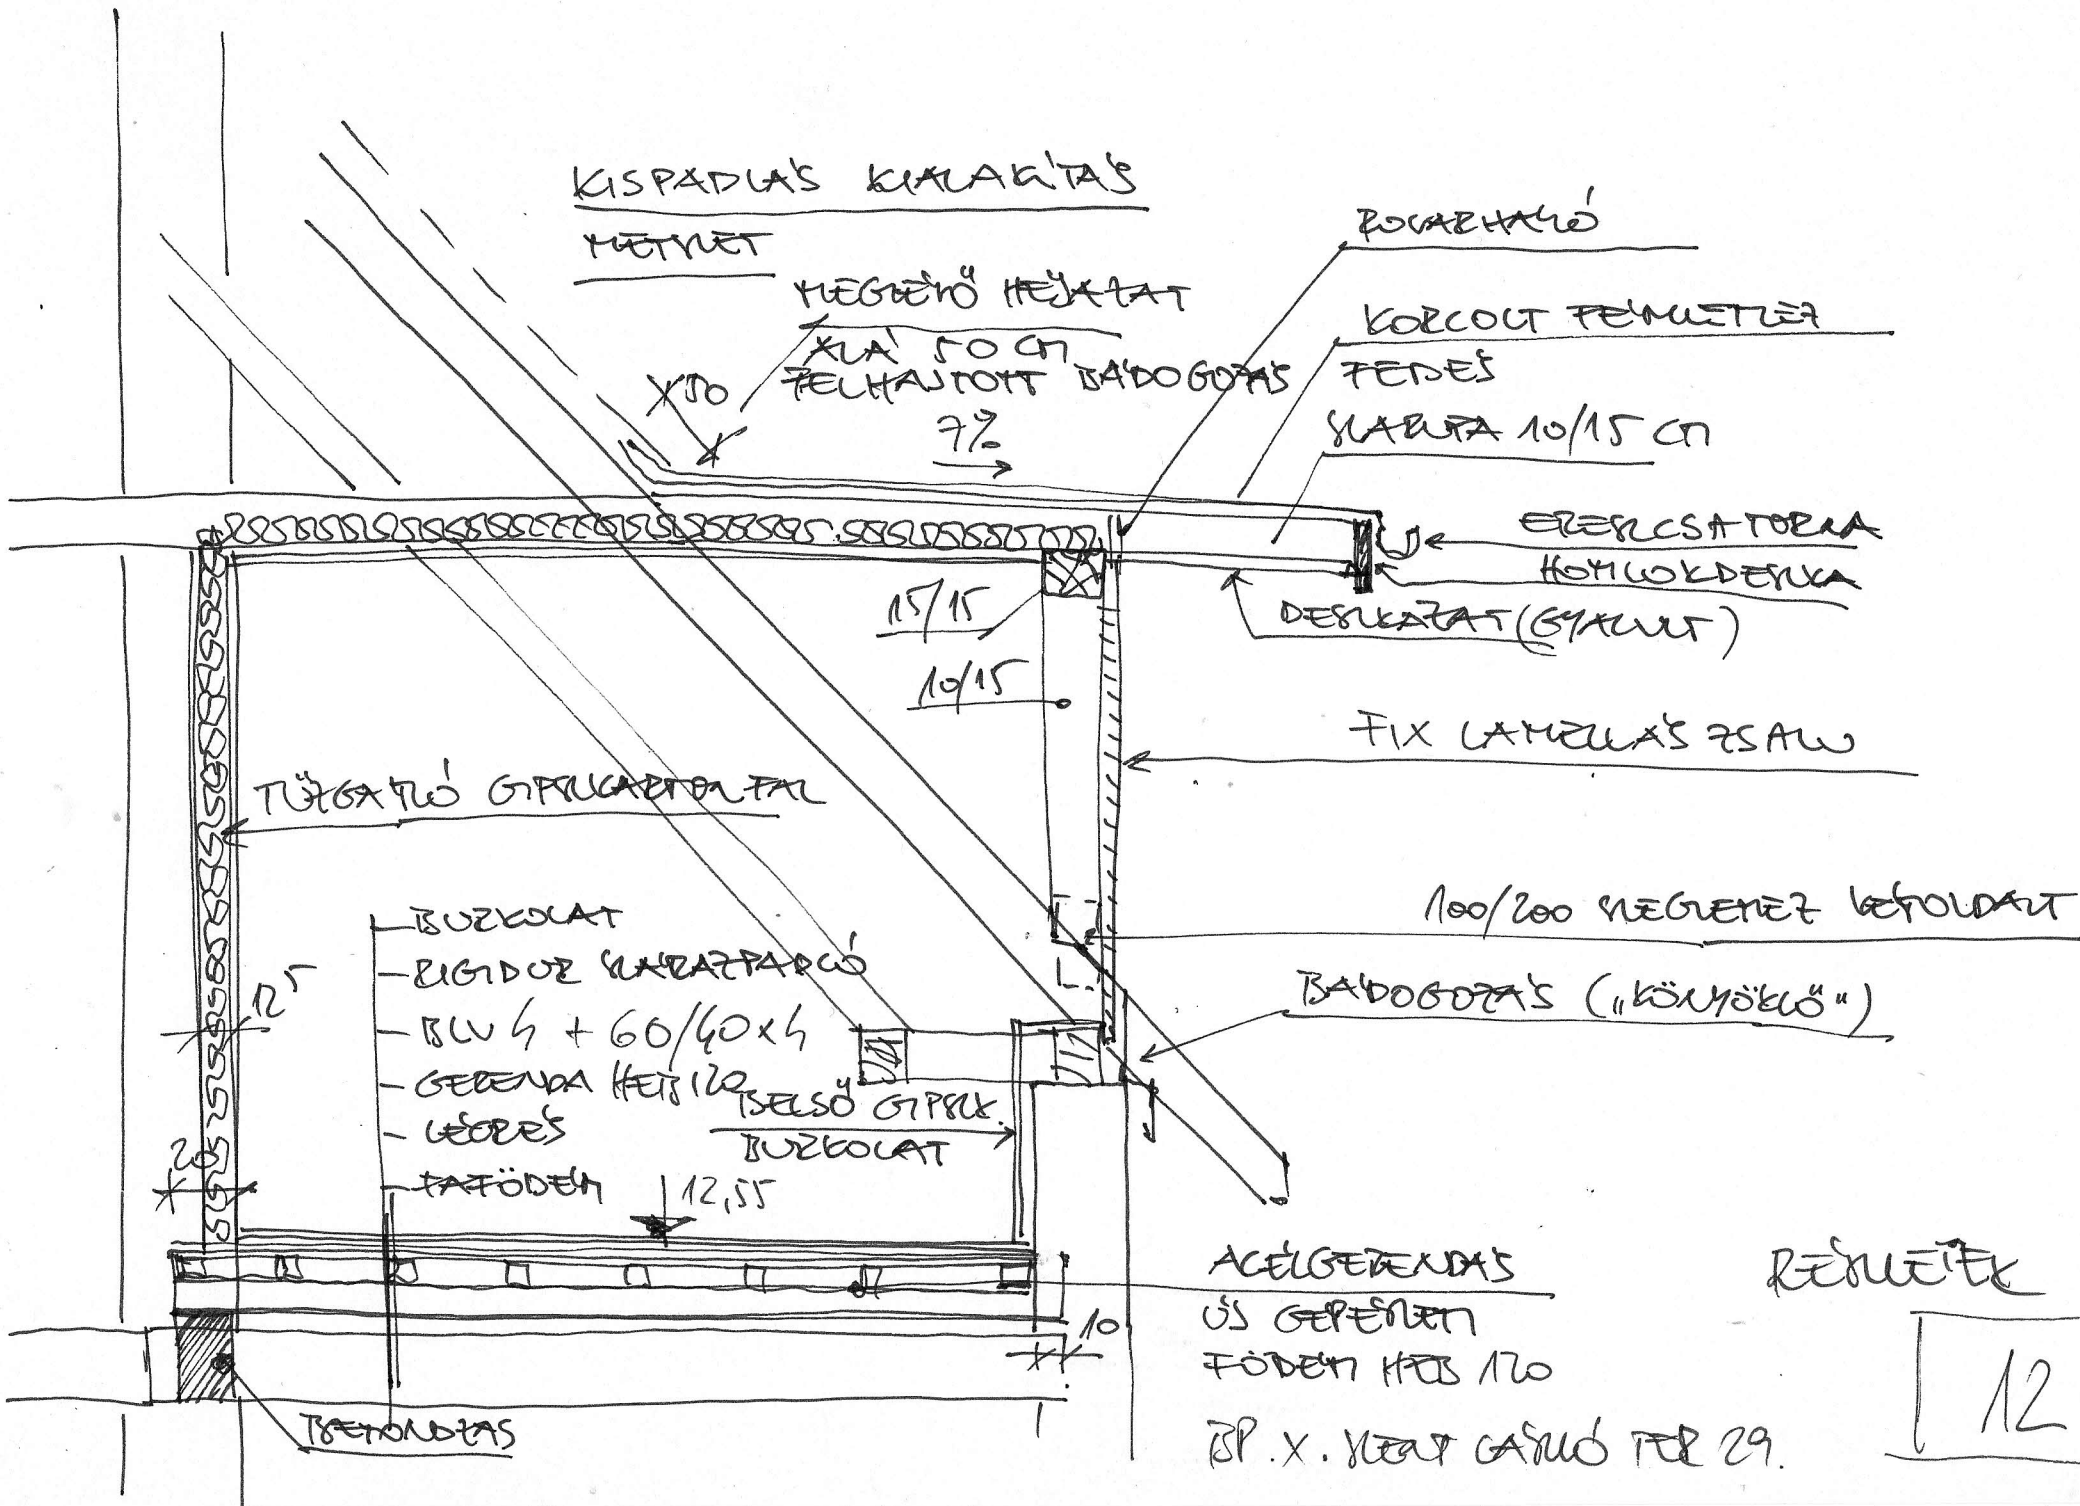 KISPADLÁS KIALAKÍTÁS
METSZET
MEGLÉVŐ HÉJAZAT
ALÁ 50 CM
FELHAJTOTT BÁDOGOZÁS
50
7%
ROVARHÁLÓ
KORCOLT FÉMLEMEZ
FEDÉS
SZARUFA 10/15 CM
ERESZCSATORNA
HOMLOKDESZKA
DESZKÁZAT (GYALULT)
15/15
10/15
FIX LAMELLÁS ZSALU
TŰZGÁTLÓ GIPSZKARTON FAL
100/200 SZEGLEMEZ KÉTOLDALT
BÁDOGOZÁS („KÖNYÖKLŐ")
BURKOLAT
RIGIDUR SZÁRAZPADLÓ
BLV 4 + 60/40x4
GERENDA HEB 120
LÉGRÉS
FAFÖDÉM
12⁵
20
BELSŐ GIPSZK.
BURKOLAT
12,55
ACÉLGERENDÁS
ÚJ GÉPÉSZETI
FÖDÉM HEB 120
10
BETONOZÁS
RÉSZLETEK
12
BP. X. SZENT LÁSZLÓ TÉR 29.